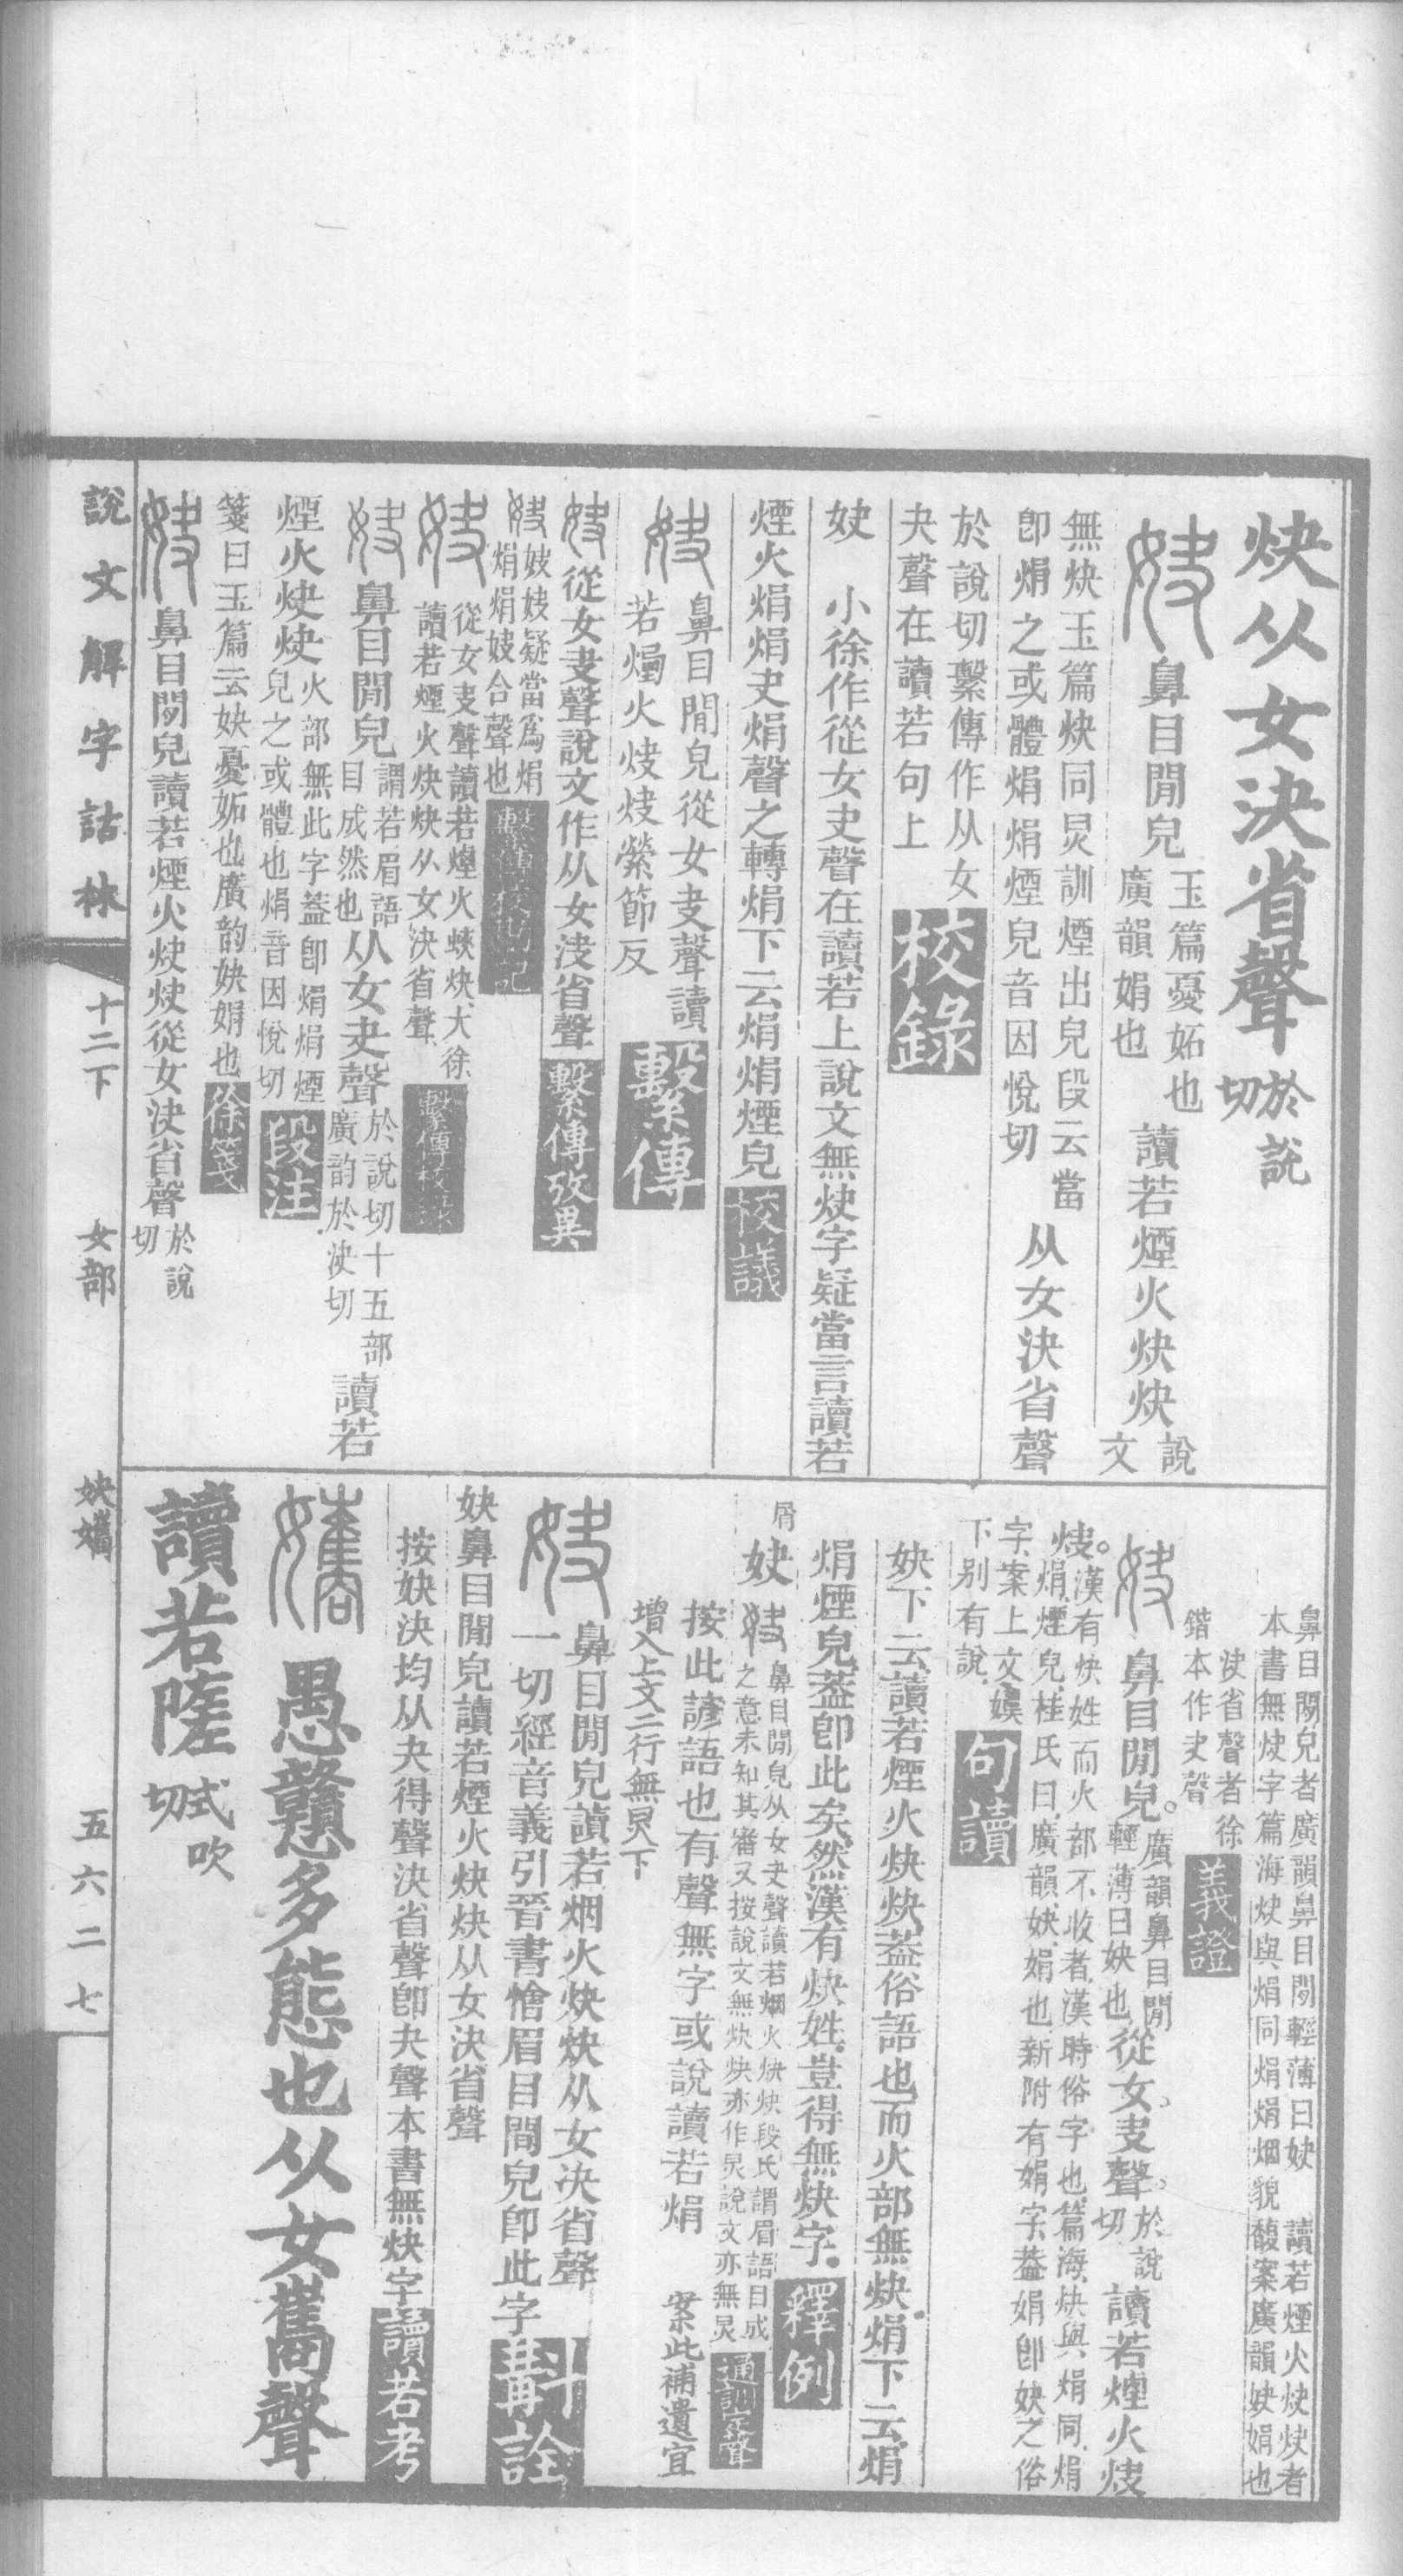 炔从女決省聲於說切
鼻目閒皃玉篇憂妬也廣韻娟也讀若煙火炔炔說文
無炔玉篇炔同炅訓煙出皃段云當
卽焆之或體焆焆煙皃音因悅切从女決省聲
於說切繫傳作从女
夬聲在讀若句上校錄
妜 小徐作從女夬聲在讀若上說文無炔字疑當言讀若
煙火焆焆夬焆聲之轉焆下云焆焆煙皃校議
鼻目閒皃從女夬聲讀
若煙火炔炔縈節反繫傳
從女夬聲說文作从女決省聲繫傳攷異
妜妜疑當爲焆
焆焆妜合聲也繫傳校勘記
從女夬聲讀若煙火炔炔大徐
讀若煙火炔炔从女決省聲繫傳校錄
鼻目閒皃謂若眉語目成然也从女夬聲於說切十五部廣韵於決切讀若
煙火炔炔火部無此字葢卽焆焆煙皃之或體也焆音因悅切段注
箋曰玉篇云妜憂妬也廣韵妜娟也徐箋
鼻目閒皃讀若煙火炔炔從女決省聲於說切
鼻目閒皃者廣韻鼻目閒輕薄曰妜 讀若煙火炔炔者
本書無炔字篇海炔與焆同焆焆烟貌 馥案廣韻妜娟也
決省聲者徐
鍇本作夬聲義證
鼻目閒皃廣韻鼻目閒輕薄曰妜也從女夬聲於說切讀若煙火炔
炔漢有炔姓而火部不收者漢時俗字也篇海炔與焆同焆
焆煙皃桂氏曰廣韻妜娟也新附有娟字葢娟卽妜之俗
字案上文嬽
下別有說句讀
妜下云讀若煙火炔炔葢俗語也而火部無炔焆下云焆
焆煙皃葢卽此矣然漢有炔姓豈得無炔字釋例
屑
妜鼻目閒皃从女夬聲讀若烟火炔炔段氏謂眉語目成
之意未知其審又按說文無炔炔亦作炅說文亦無炅通訓定聲
按此諺語也有聲無字或說讀若焆 案此補遺宜
增入上文二行無炅下
鼻目閒皃讀若烟火炔炔从女決省聲
一切經音義引晉書憎眉目間皃卽此字斠詮
妜鼻目閒皃讀若煙火炔炔从女決省聲
按妜決均从夬得聲決省聲卽夬聲本書無炔字讀若考
愚戇多態也从女巂聲
讀若陸式吹切
說文解字詁林 十二下 女部 妜孈 五六二七